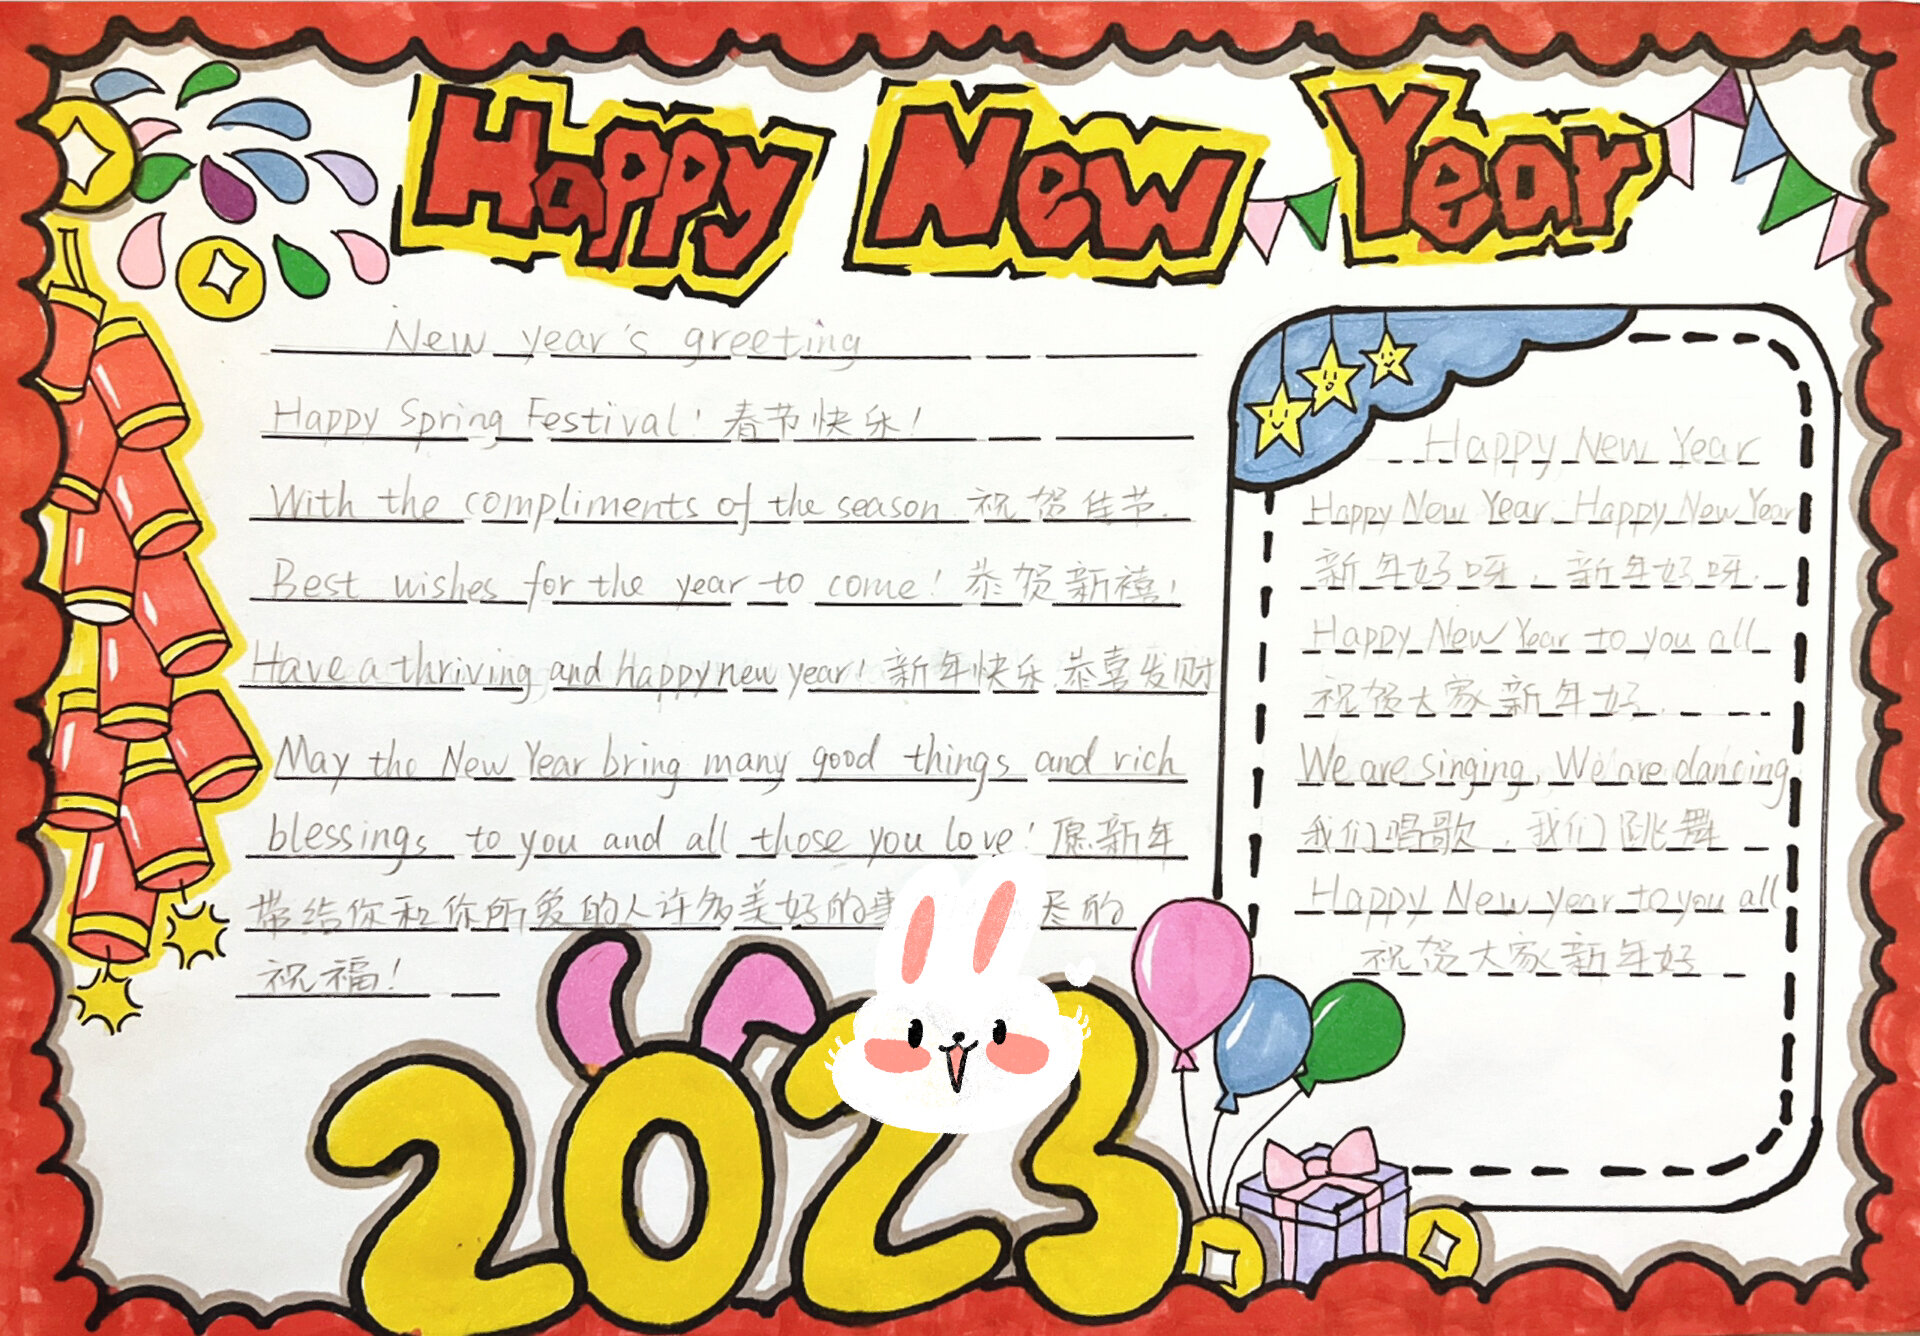 Happy New Year
New year's greeting
Happy Spring Festival! 春节快乐!
With the compliments of the season 祝贺佳节.
Best wishes for the year to come! 恭贺新禧!
Have a thriving and happy new year! 新年快乐.恭喜发财
May the New Year bring many good things and rich
blessings to you and all those you love! 愿新年
带给你和你所爱的人许多美好的事 尽的
祝福!
Happy New Year
Happy New Year, Happy New Year
新年好呀, 新年好呀.
Happy New Year to you all
祝贺大家新年好.
We are singing, We are dancing
我们唱歌, 我们跳舞
Happy New year to you all
祝贺大家新年好
2023